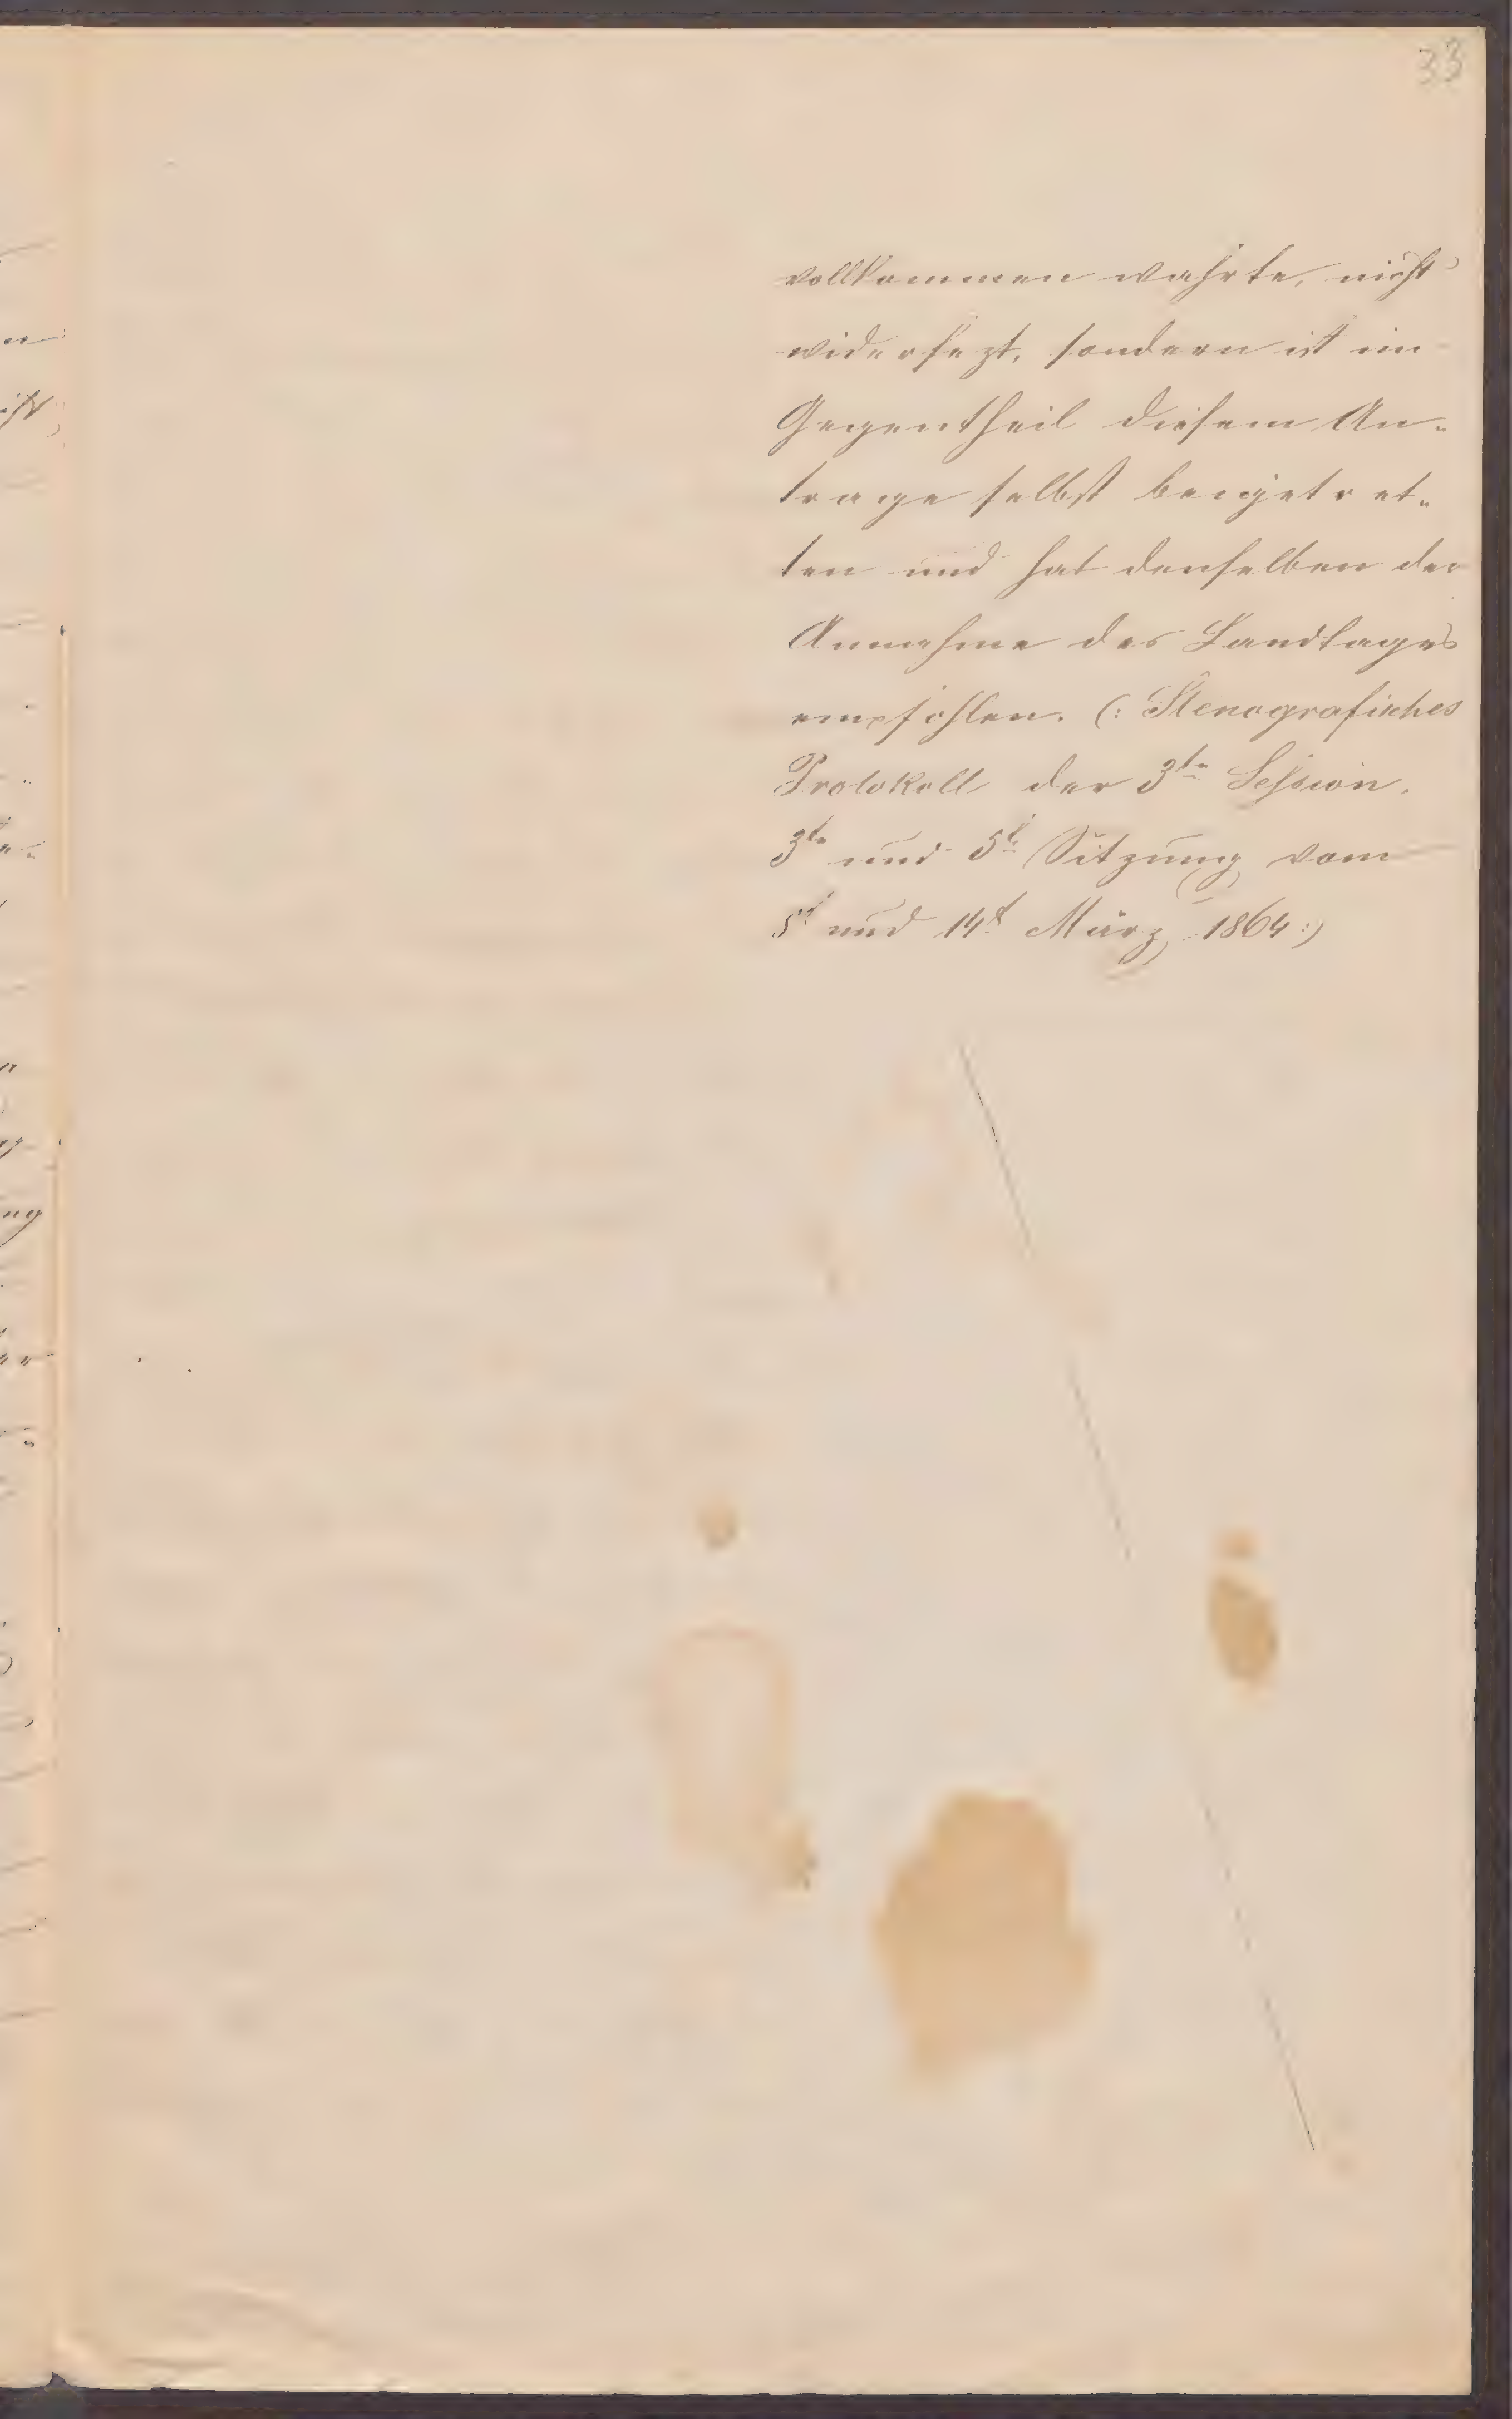 33
vollkommen wahrte, nicht
widersezt, sondern ist im
Gegentheil diesem An-
trage selbst beigetret-
ten und hat denselben der
Annahme des Landtages
empfohlen. (: Stenografisches
Protokoll der 3te Session.
3te und 5t Sitzung vom
5t und 14t März 1864 :)